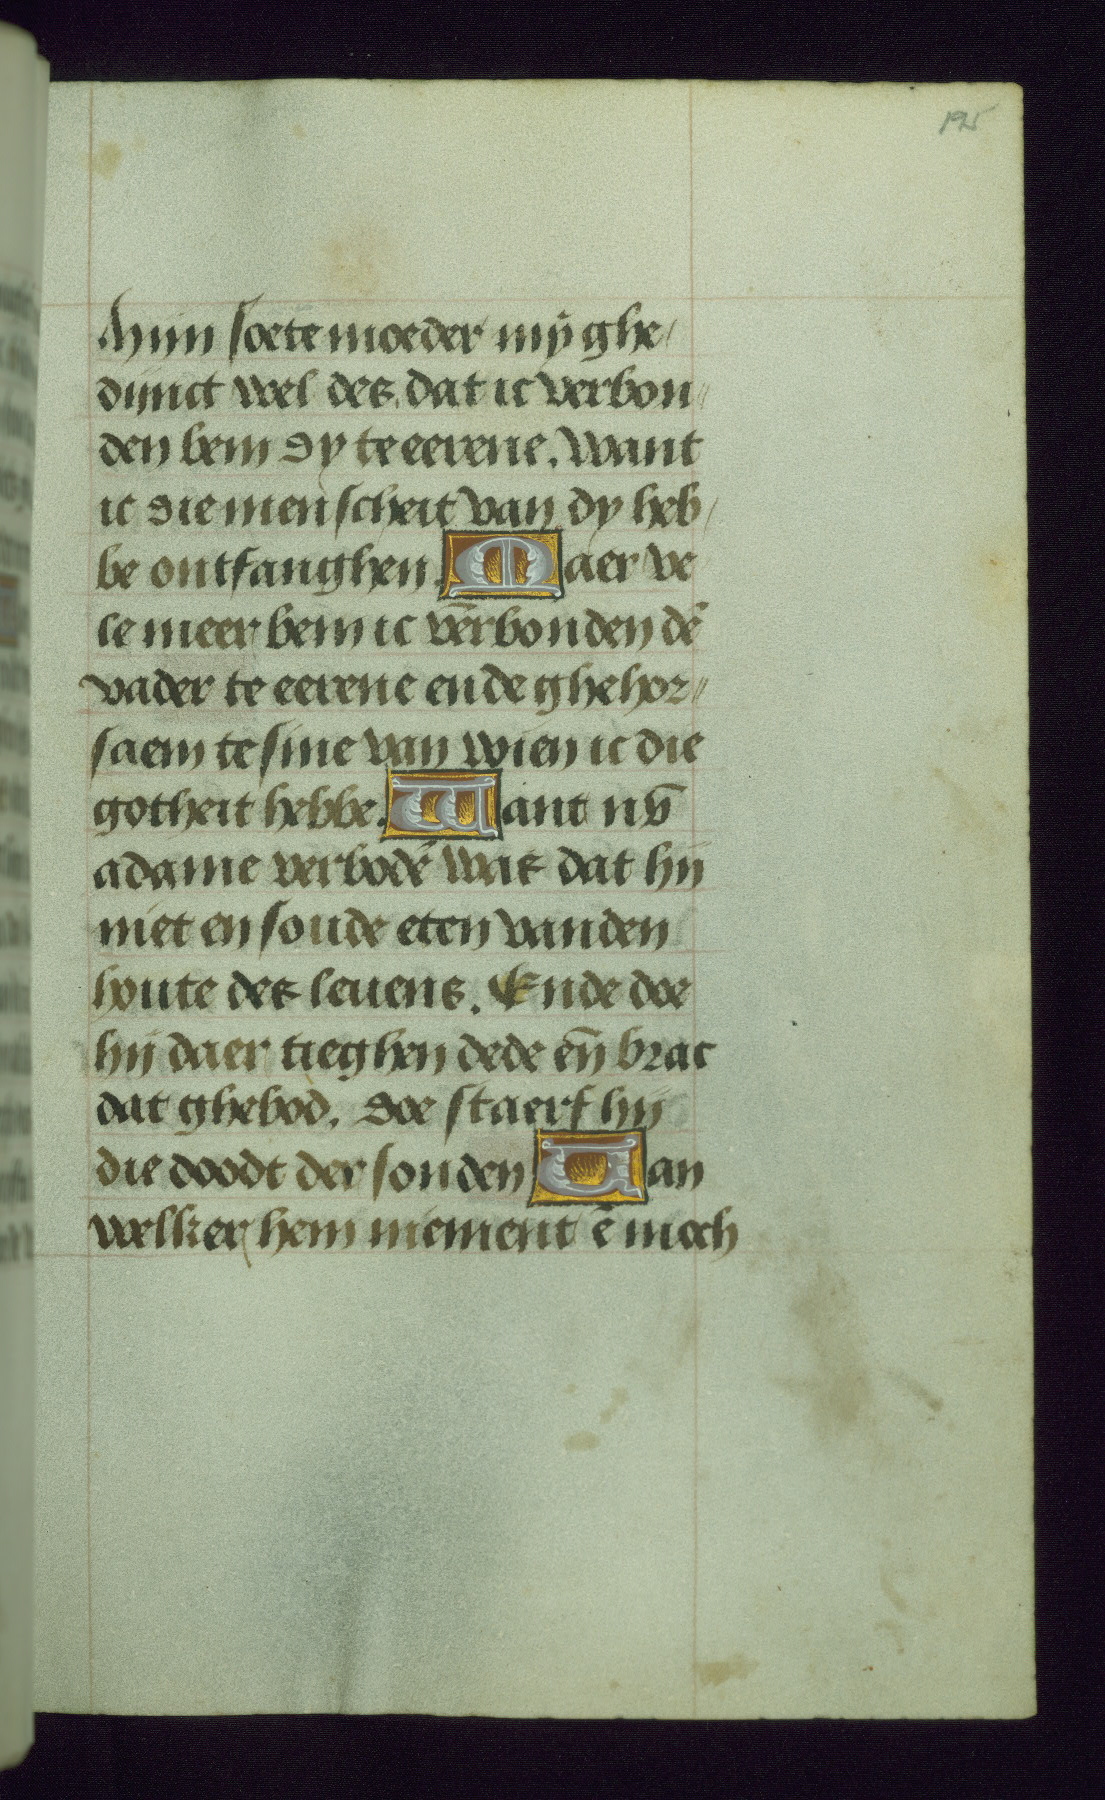 195
Mijn soete moeder mÿ ghe/
dijnct wel des. dat ic verbon//
den bem dy te eerene. Want
ic die menscheit van dy heb/
be ontfanghen. Maer ve
le meer bem ic v̄erbonden dē
vader te eerene ende ghehor//
saem te sine van wien ic die
gotheit hebbe. Want nv̄
adame verbodē was dat hij
niet en soude eten vanden
houte des leuens. Ende doe
hij daer tieghen dede eñ brac
dat ghebod. Soe staerf hij
die doodt der sonden Van
welker hem niement ē moch